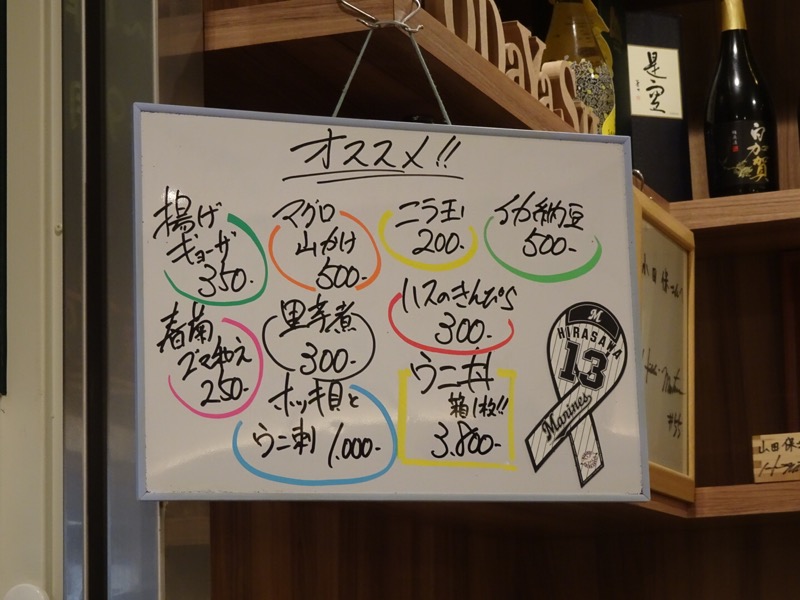 オススメ!!
揚げ
ギョーザ
350-
マグロ
山かけ
500-
ニラ玉
200-
イカ納豆
500-
春菊
ゴマ和え
250-
里芋煮
300-
ハスのきんぴら
300-
ホッキ貝と
ウニ刺 1,000-
ウニ丼
箱1枚!!
3,800-
M
HIRASAWA
13
Marines
是空
百加賀